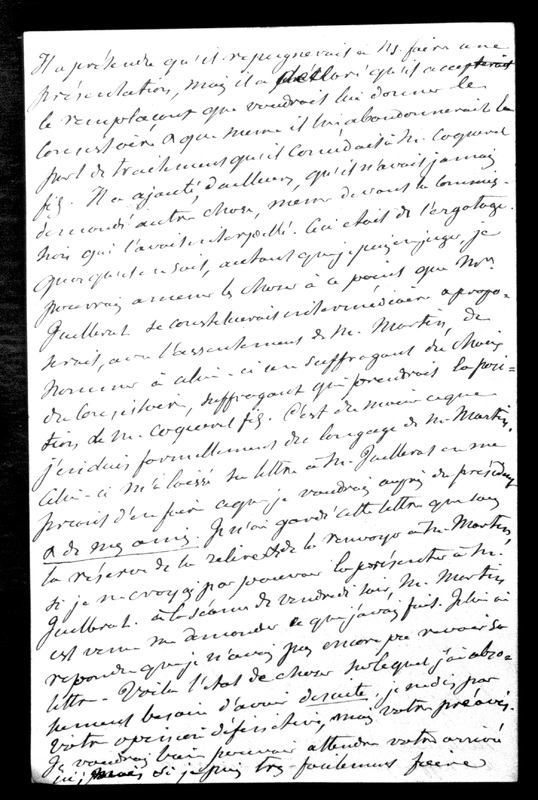 Il a prétendu qu'il répugnerait à Ms. faire une
présentation, mais il a déclaré qu'il accepterait
le remplaçant que voudrait lui donner le
Consistoire & que même il lui abandonnerait la
part de traitement qu'il concédait à M. Coquerel
fils. Il a ajouté, d'ailleurs, qu'il n'avait jamais
demandé autre chose, même devant la Commis-
sion qui l'avait interpellé. Ceci était de l'ergotage.
Quoiqu'il en soit, autant que je puis en juger, je
pourrais amener les choses à ce point que Mr.
Guillerat se constituerait intermédiaire & propo-
serait, avec l'assentiment de M. Martin, de
nommer à celui-ci un suffragant du choix
du Consistoire, suffragant qui prendrait la posi-
tion de M. Coquerel fils. C'est du moins ce que
j'induis formellement du langage de M. Martin.
Celui-ci m'a laissé sa lettre à M. Guillerat en me
priant d'en faire ce que je voudrais auprès du président
& de mes amis. Je n'ai gardé cette lettre que sous
la réserve de la relire & de la renvoyer à M. Martin,
si je ne croyais pas pouvoir la présenter à M.
Guillerat. à la séance de vendredi soir, M. Martin
est venu me demander ce que j'avais fait. Je lui ai
répondu que je n'avais pas encore pu revoir sa
lettre. Voilà l'état de chose sur lequel j'ai abso-
lument besoin d'avoir de suite, je ne dis pas
votre opinion définitive, mais votre préavis.
Je voudrais bien pouvoir attendre votre arrivée
ici; mais si je puis très facilement faire